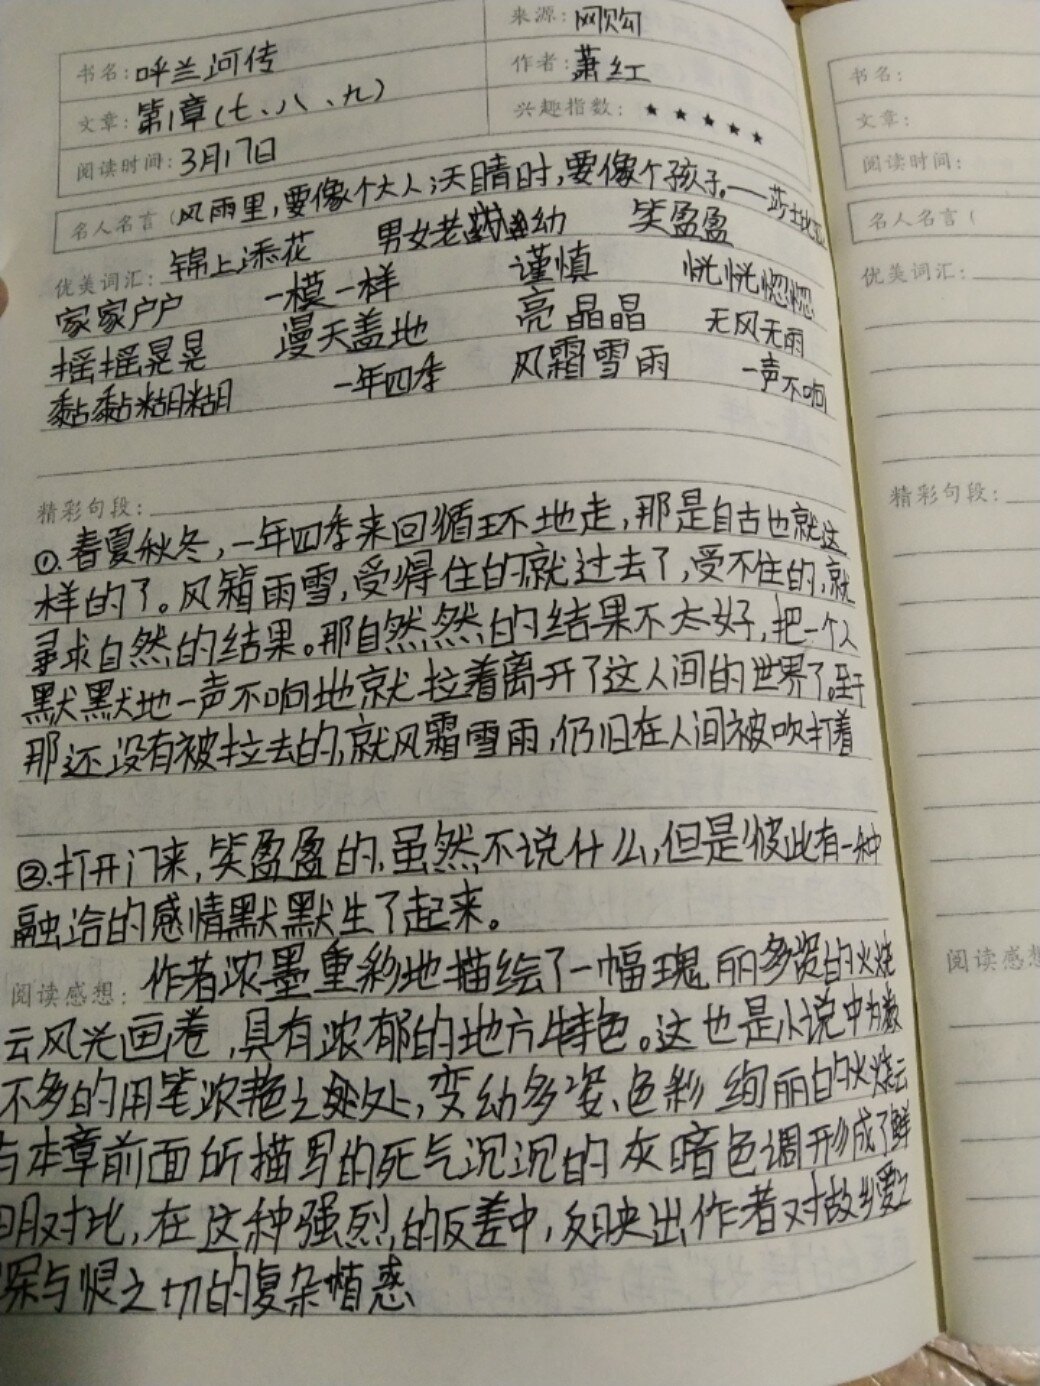 来源：网购
书名：呼兰河传
作者：萧红
文章：第1章(七、八、九)
兴趣指数：★ ★ ★ ★ ★
阅读时间：3月17日
名人名言（风雨里，要像个大人；天晴时，要像个孩子。——莎士比亚
优美词汇：锦上添花 男女老幼 笑盈盈
家家户户 一模一样 谨慎 恍恍惚惚
摇摇晃晃 漫天盖地 亮晶晶 无风无雨
黏黏糊糊 一年四季 风霜雪雨 一声不响
精彩句段：
①.春夏秋冬，一年四季来回循环地走，那是自古也就这
样的了。风箱雨雪，受得住的就过去了，受不住的，就
寻求自然的结果。那自然然的结果不太好，把一个人
默默地一声不响地就拉着离开了这人间的世界了。至于
那还没有被拉去的，就风霜雪雨，仍旧在人间被吹打着
②.打开门来，笑盈盈的，虽然不说什么，但是彼此有一种
融洽的感情默默生了起来。
阅读感想：作者浓墨重彩地描绘了一幅瑰丽多姿的火烧
云风光画卷，具有浓郁的地方特色。这也是小说中为数
不多的用笔浓艳之处，变幼多姿、色彩绚丽的火烧云
与本章前面所描写的死气沉沉的灰暗色调形成了鲜
明对比，在这种强烈的反差中，反映出作者对故乡爱之
深与恨之切的复杂情感
书名：
文章：
阅读时间：
名人名言（
优美词汇：
精彩句段：
阅读感想